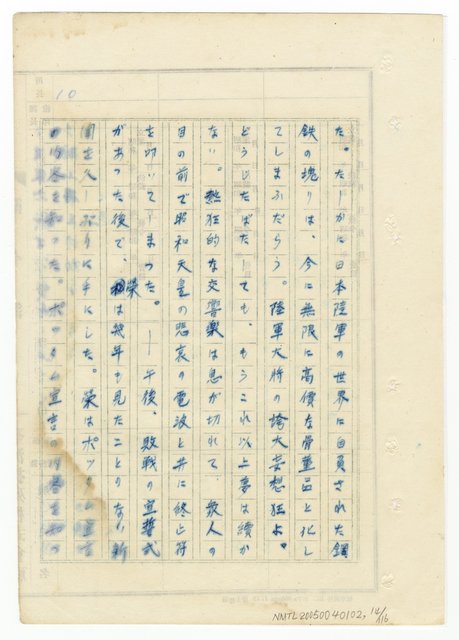 10
た。たしかに日本陸軍の世界に自負された鋼
鉄の塊りは、今に無限に高價な骨董品と化し
てしまふだらう。陸軍大将の誇大妄想狂よ。
どうじたばたしても、もうこれ以上夢は續か
ない。熱狂的な交響楽は息が切れて、衆人の
目の前で昭和天皇の悲哀の電波と共に終止符
を叩いてしまった。――午後、敗戦の宣誓式
があった後で、榮は幾年も見たことのない新
聞を久しぶりに手にした。榮はポツダム宣言
の内容を知った。ポツダム宣言の内容を知つ
NMTL20050040102, 14/116